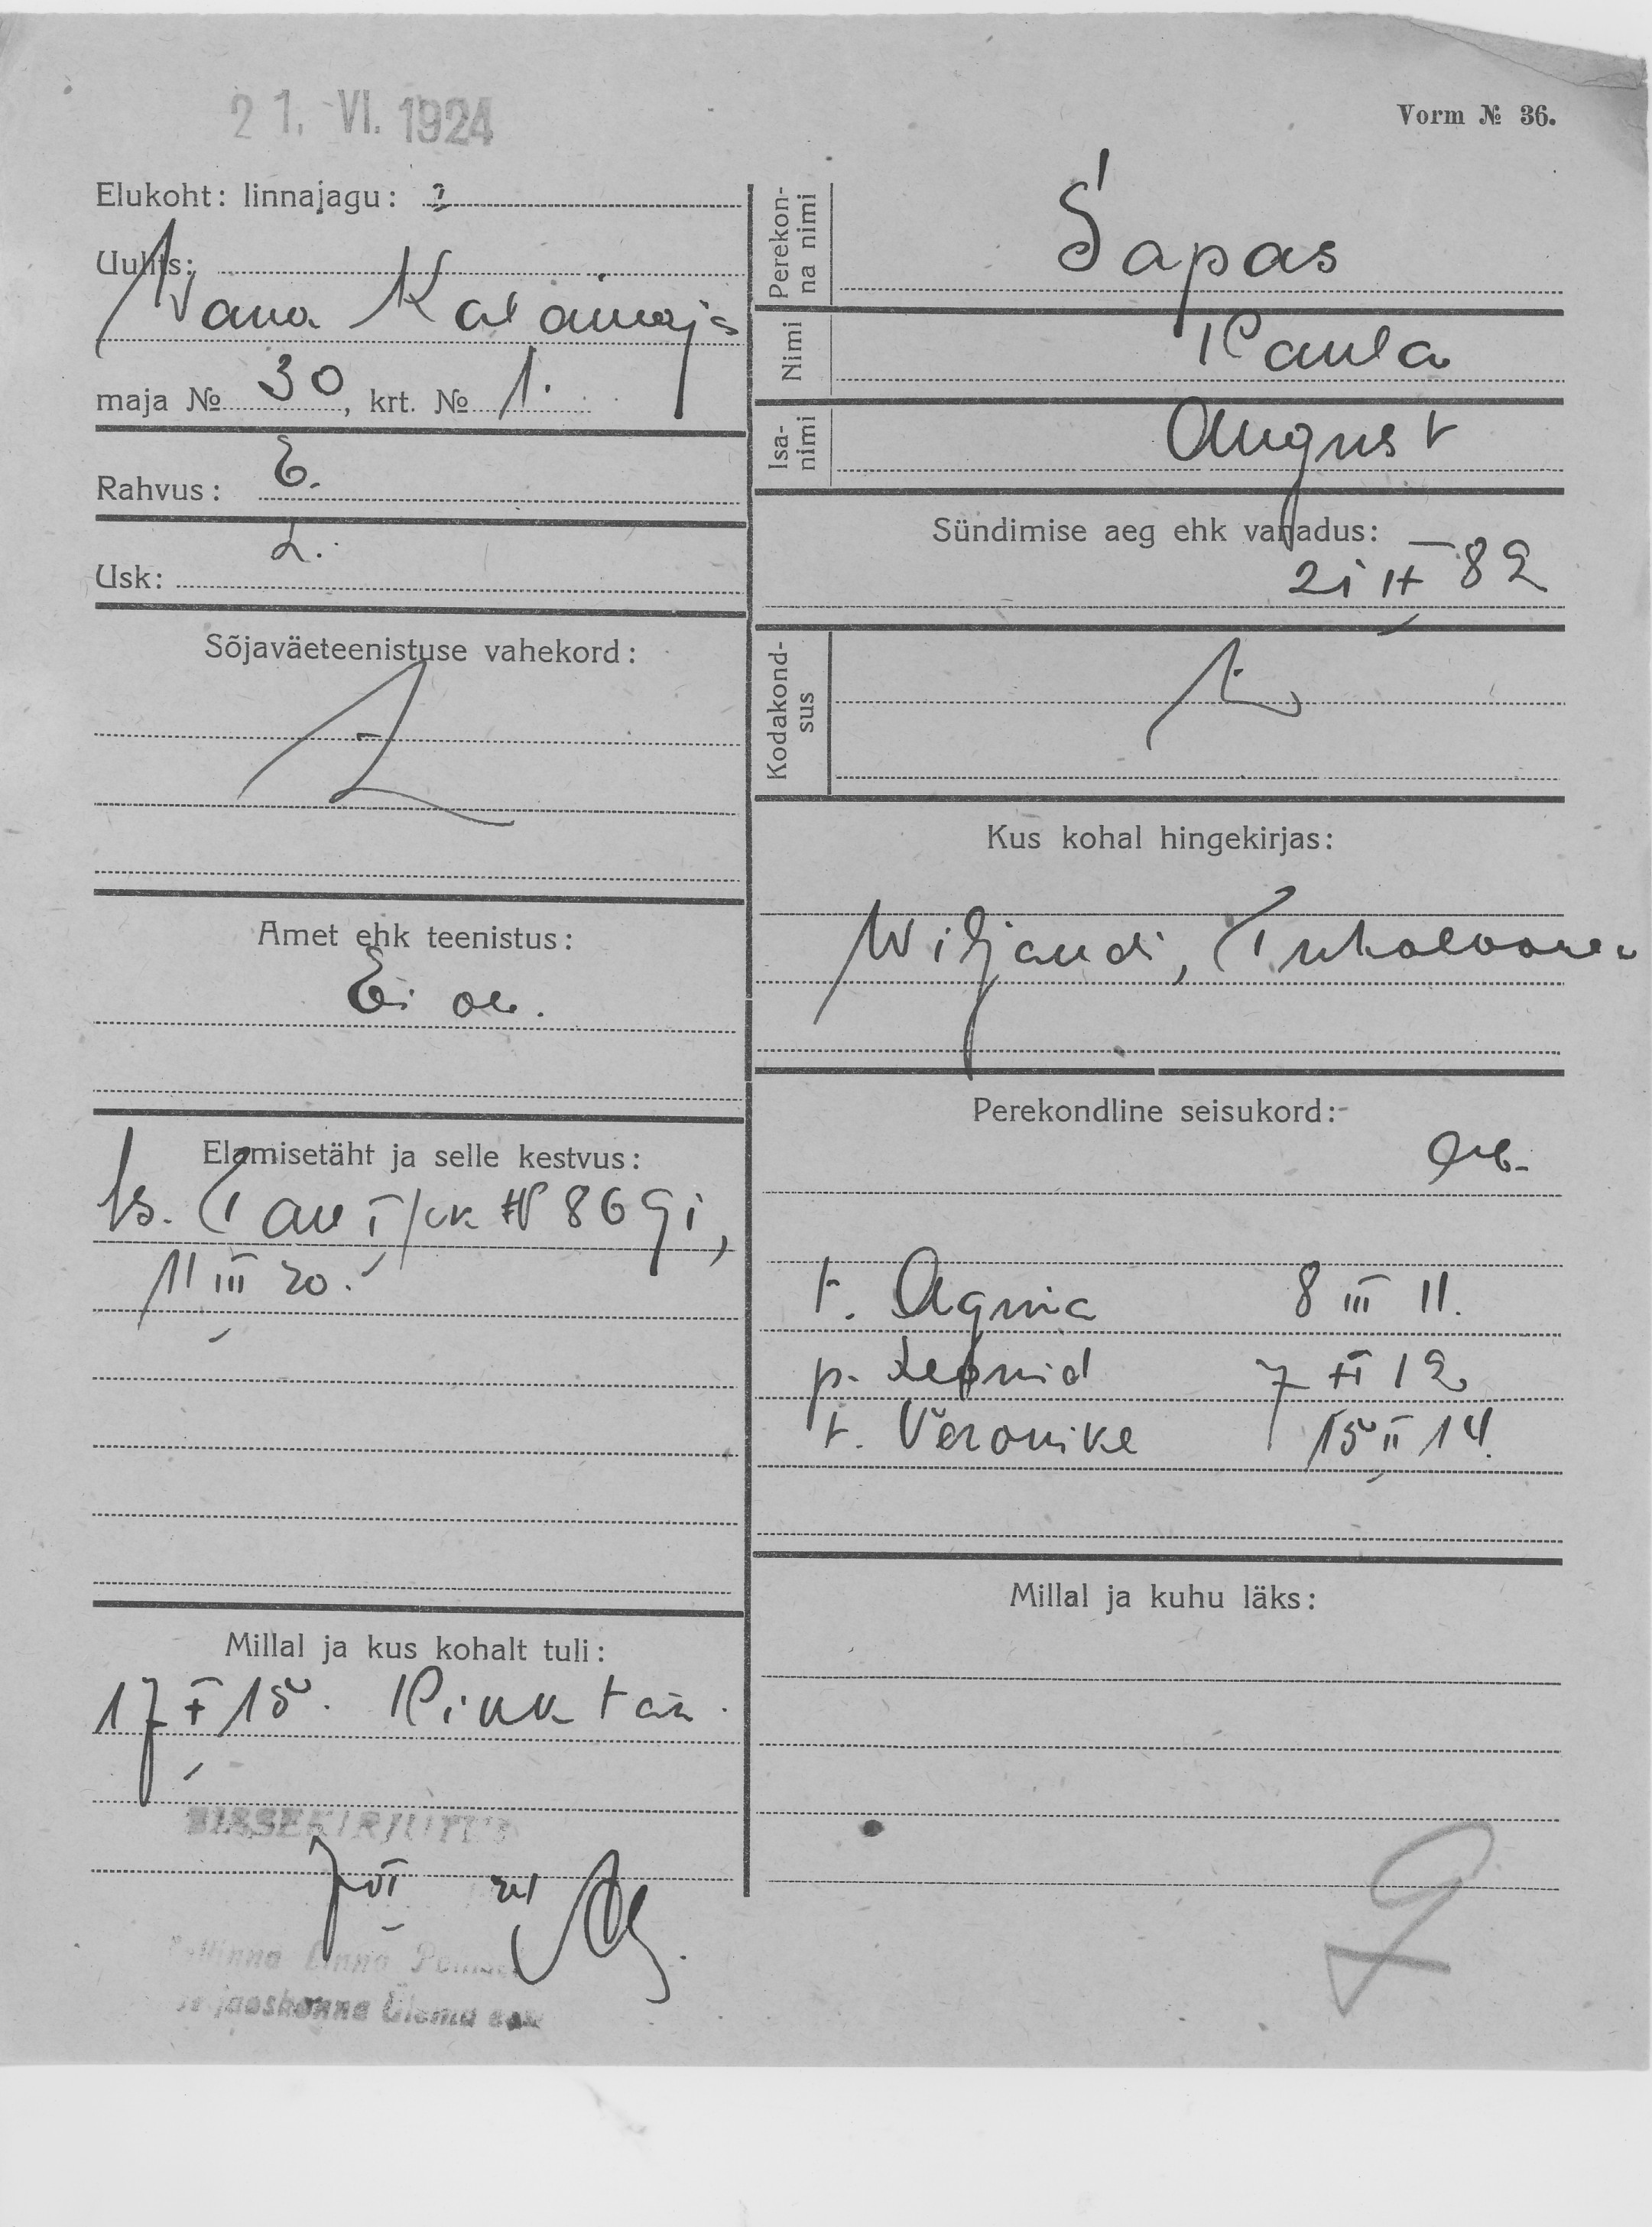 21. VI. 1924
Vorm № 36.
Elukoht: linnajagu:
Uulits:
Wana Kalamaja
maja № 30, krt. № 1.
Rahvus: E.
Usk: L.
Sõjaväeteenistuse vahekord:
Amet ehk teenistus:
Ei ole.
Elamisetäht ja selle kestvus:
Is. t. № 8691,
11 III 20.
Millal ja kus kohalt tuli:
17 X 15.
SISSEKIRJUTUD
7 VI
Tallinna Linna
jaoskonna Ülema
Perekonna nimi
Sapas
Nimi
Paula
Isanimi
August
Sündimise aeg ehk vanadus:
82
Kodakondsus
Kus kohal hingekirjas:
Wiljandi,
Perekondline seisukord:
t. Agnia 8 III 11.
p. Leonid 7 XI 12
t. Veronike 15 II 14.
Millal ja kuhu läks: